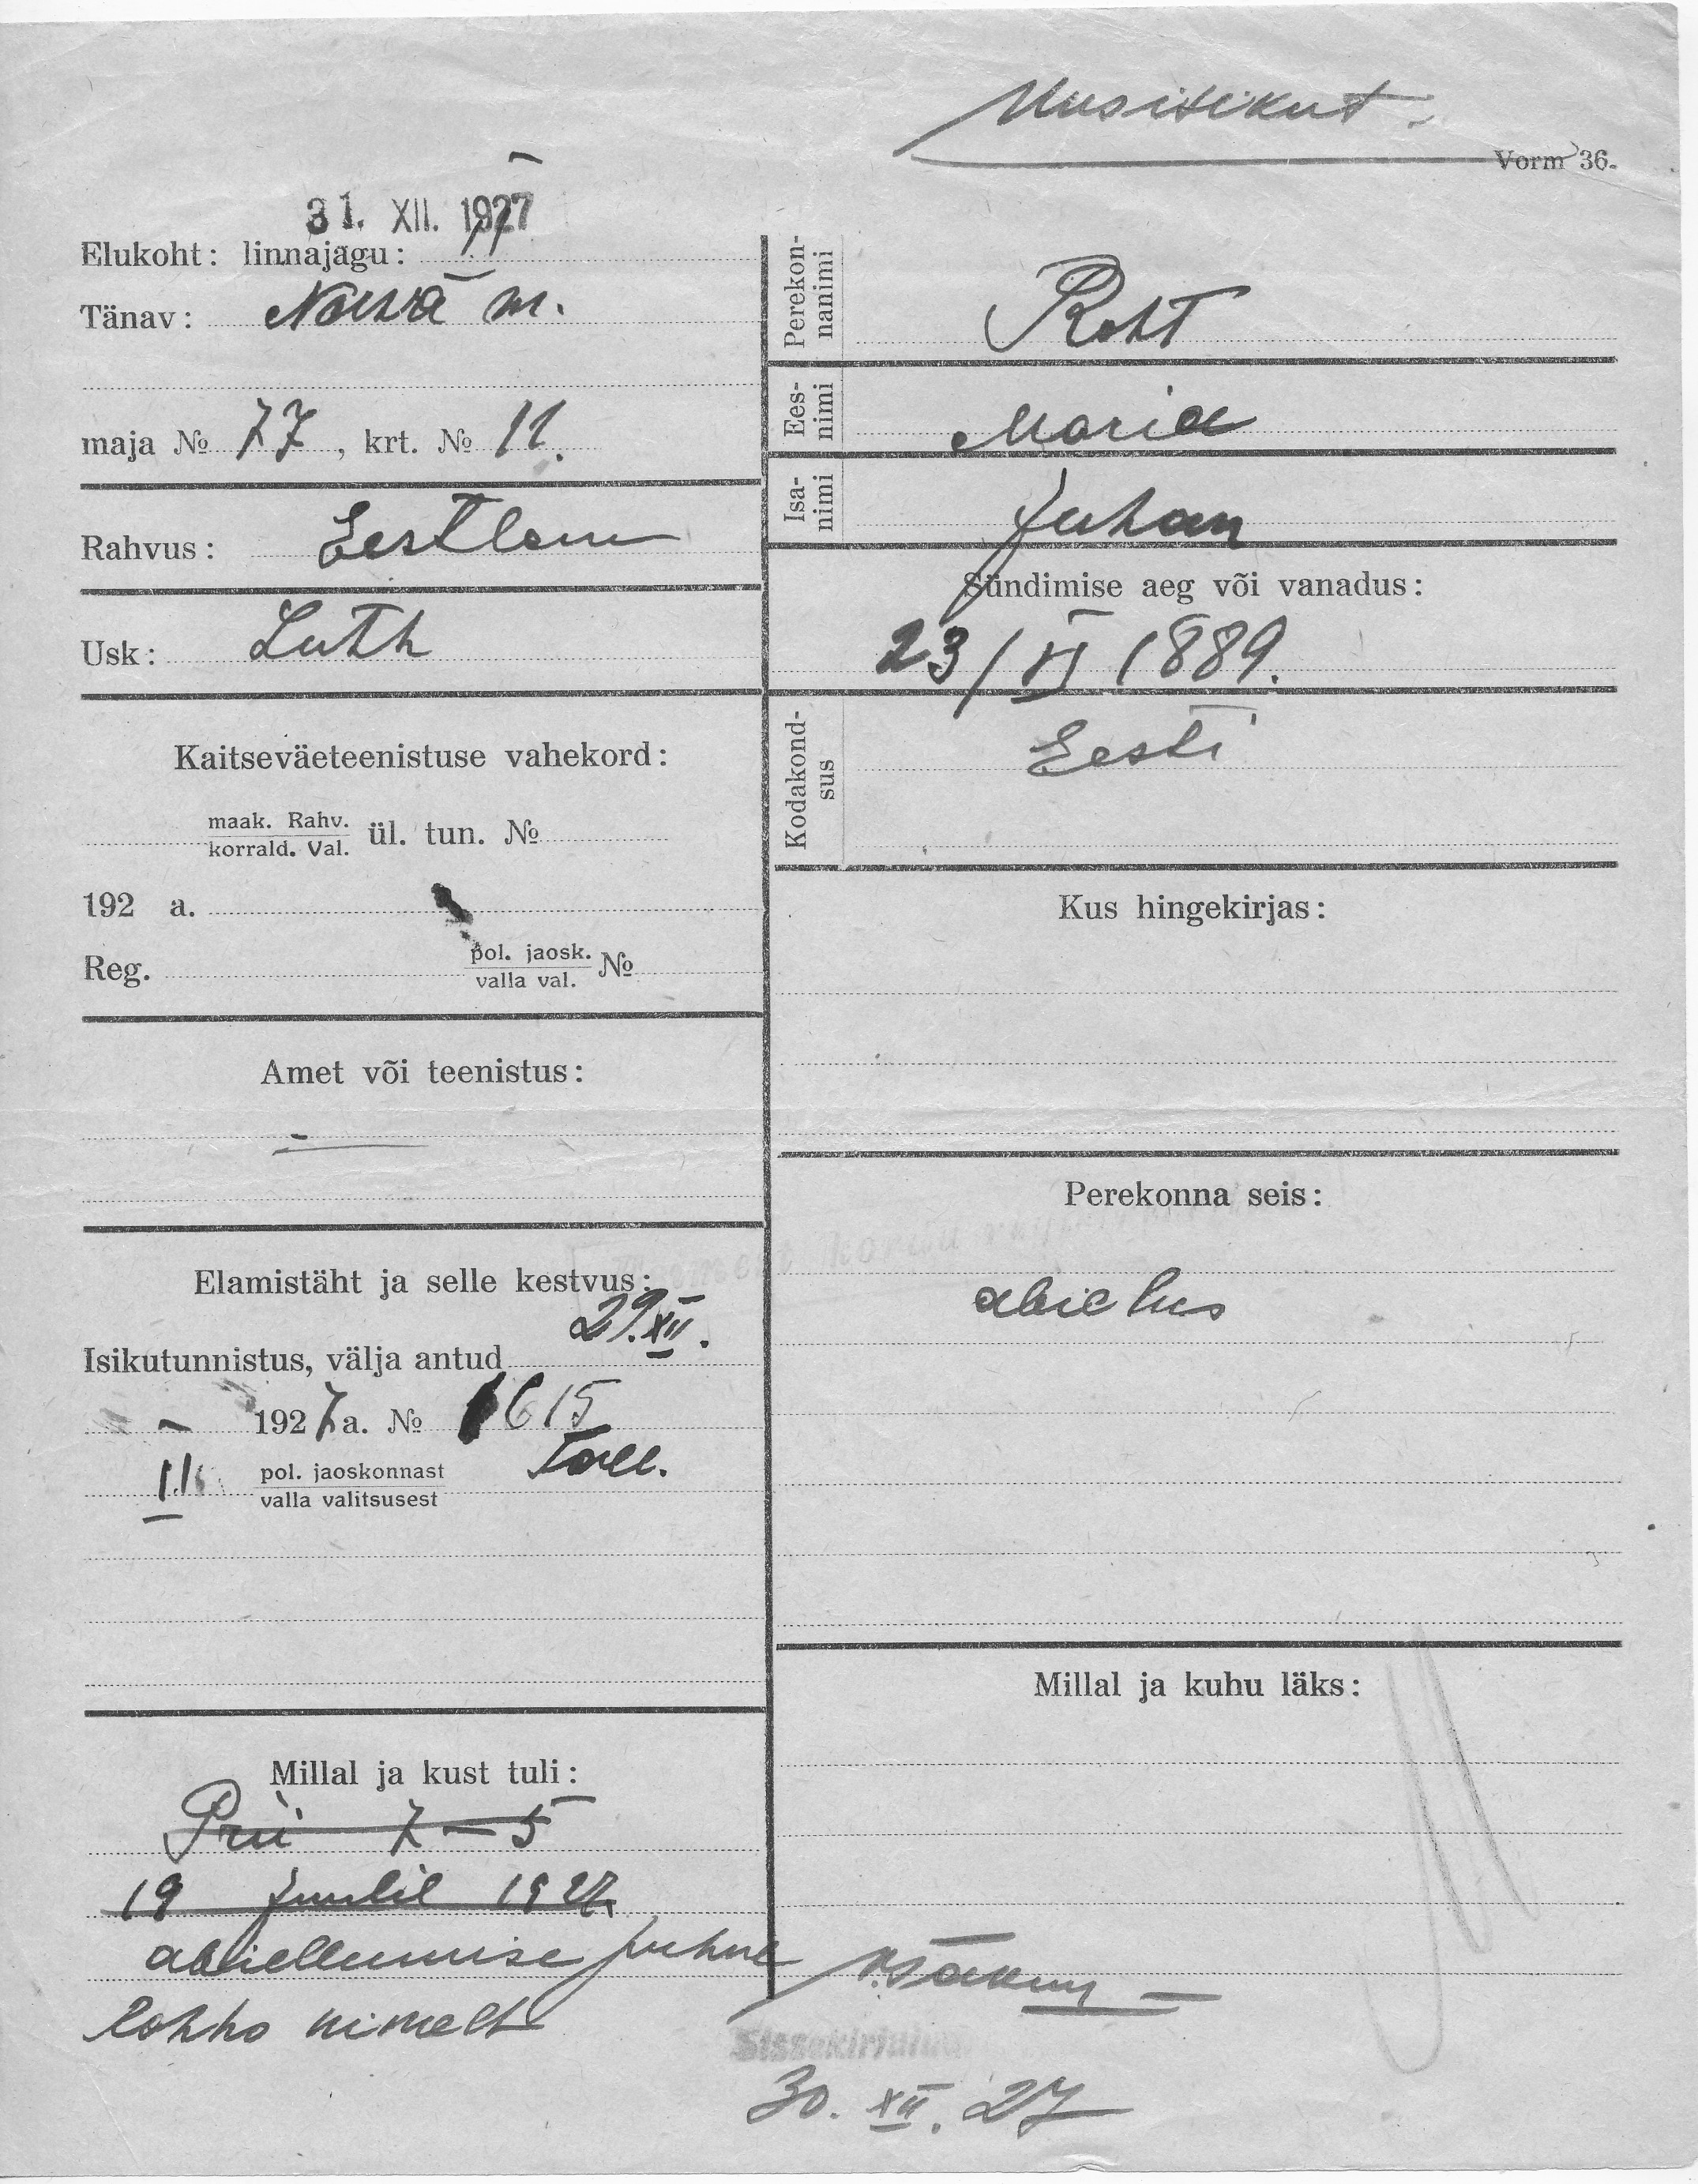 Uusisikut.
Vorm 36.
31. XII. 1927
Elukoht: linnajagu: II
Tänav: Narva m.
maja № 77, krt. № 11.
Rahvus: Eestlane
Usk: Luth
Kaitseväeteenistuse vahekord:
maak. Rahv.
korrald. Val. ül. tun. №
192 a.
Reg. pol. jaosk.
valla val. №
Amet või teenistus:
—
Elamistäht ja selle kestvus:
29. XII.
Isikutunnistus, välja antud
1927 a. № 1615
II pol. jaoskonnast Tall.
valla valitsusest
Millal ja kust tuli:
Prii 7-5
19 juulil 1927
abiellumise puhul
Rohho nimelt
Perekonnanimi Roht
Eesnimi Maria
Isanimi Juhan
Sündimise aeg või vanadus:
23/VI 1889.
Kodakondsus Eesti
Kus hingekirjas:
Perekonna seis:
abielus
Millal ja kuhu läks:
Sissekirjutud
30. XII. 27